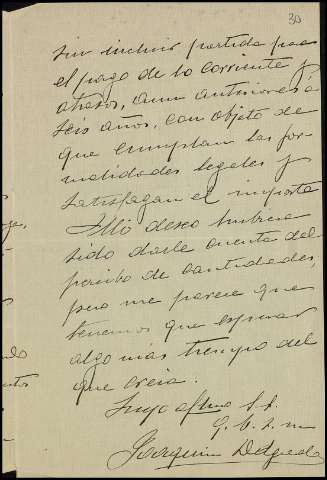 30
sin incluir partida para
el pago de lo corriente y
atrasos, aun anteriores á
seis años, con objeto de
que cumplan las for-
malidades legales y
satisfagan el importe
Mi deseo hubiera
sido darle cuenta del
percibo de cantidades,
pero me parece que
tenemos que esperar
algo mas tiempo del
que creia.
Suyo affmo S.S.
q. b. s. m
Joaquin Delgado